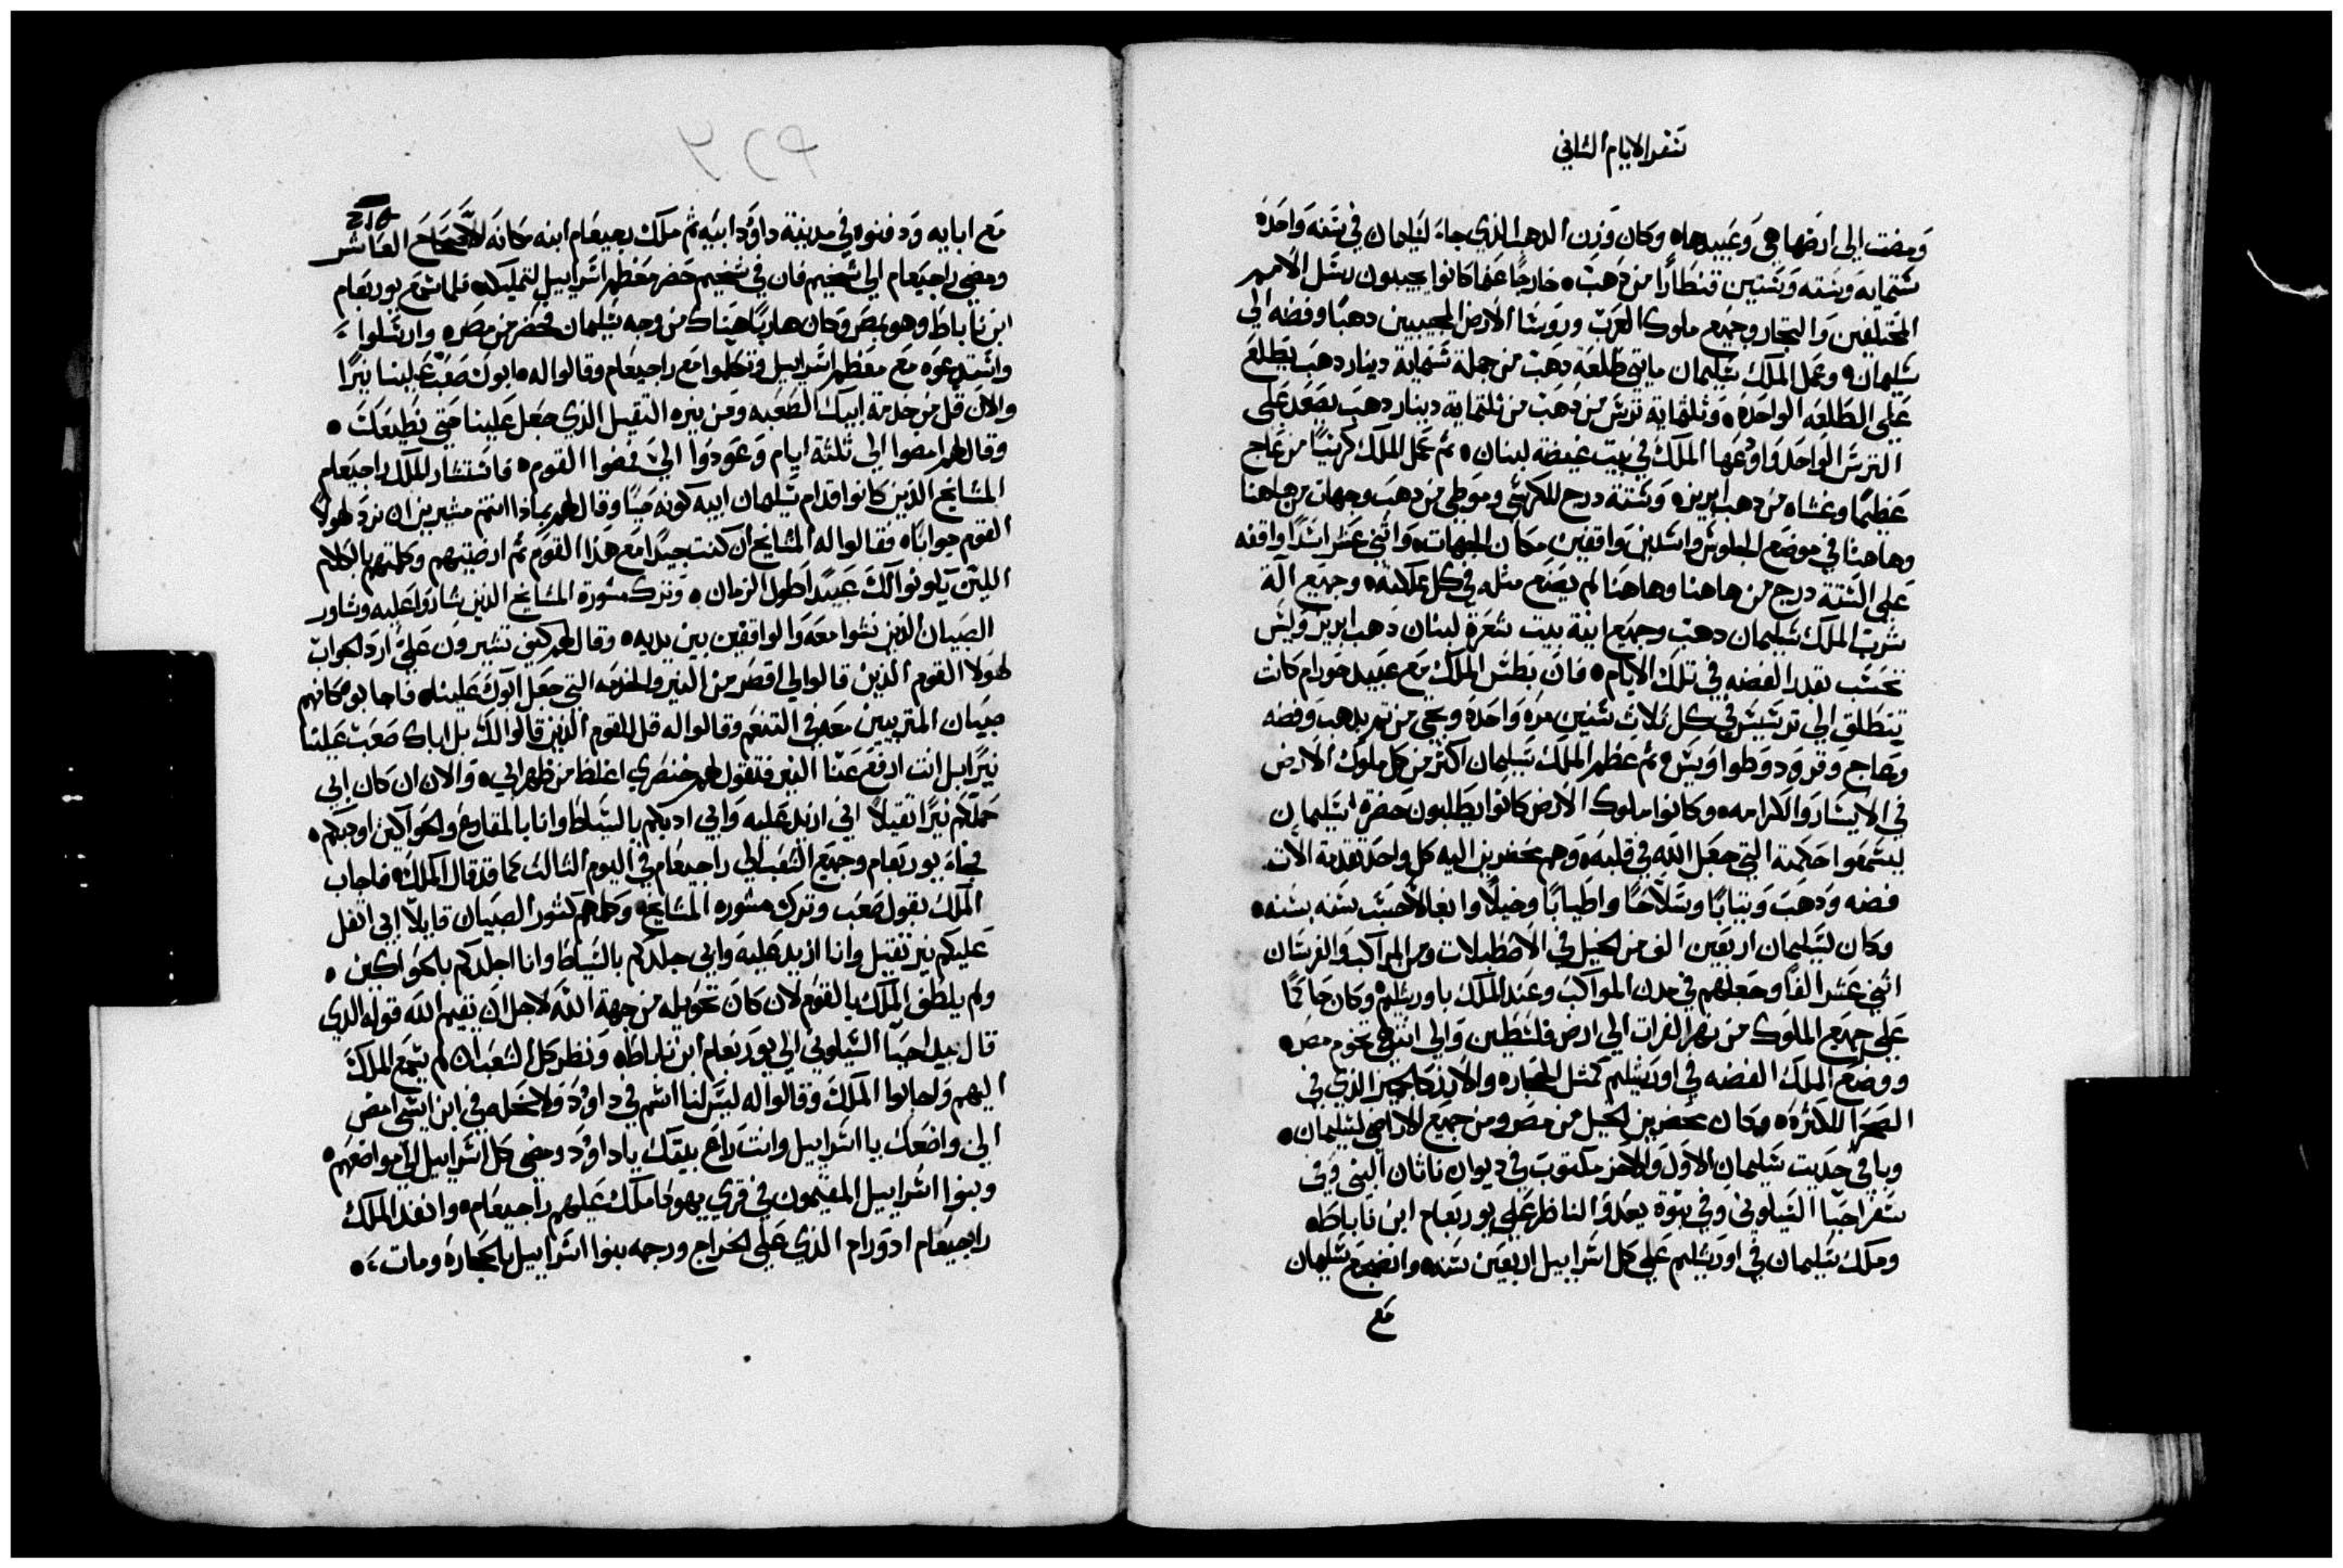 سفر الايام الثاني
ومضت الي ارضها هي وعبيدها ٥ وكان وزن الدهب الذي جاء لسليمان في سنه واحده
ستمايه وسته وستين قنطارا من دهب ٥ خارجا عما كانوا يجيبون رسل الامم
المختلفين والتجار وجميع ملوك العرب وروسا الارض المجيبين دهبا وفضه الي
سليمان ٥ وعمل الملك سليمان مايتي طلعه دهب من جملة ستماية دينار دهب يطلع
علي الطلعه الواحده ٥ وثلثماية ترس من دهب من ثلثماية دينار دهب يصعد علي
الترس الواحد واوعها الملك في بيت غيضة لبنان ٥ ثم عمل الملك كرسيا من عاج
عظيما وغشاه من دهب ابريز ٥ وستة درج للكرسي وموطي من دهب وجهات من هاهنا
وهاهنا في موضع الجلوس واسدين واقفين مكان الجهات ٥ واثني عشر اسدا واقفه
علي الستة درج من هاهنا وهاهنا لم يصنع مثله في كل مملكته ٥ وجميع الة
شرب الملك سليمان دهب وجميع انية بيت شعرة لبنان دهب ابريز وليس
تحسب بقدر الفضه في تلك الايام ٥ فان بطس الملك مع عبيد حورام كانت
تنطلق الي ترسيس في كل ثلاث سنين مره واحده وتجي من ثم بدهب وفضه
وعاج وقرود وطواويس ٥ ثم عظم الملك سليمان اكثر من كل ملوك الارض
في الايسار والكرامه ٥ وكانوا ملوك الارض كانوا يطلبون حضرة سليمان
ليسمعوا حكمته التي جعل الله في قلبه ٥ وهم محضرين اليه كل واحد تقدمة الات
فضه ودهب وثيابا وسلاحا واطيابا وخيلا وابغالا حسب سنه بسنه ٥
وكان لسليمان اربعين الف من الخيل في الاصطبلات ومن المراكب والفرسان
اثني عشر الفا وجعلهم في مدن المواكب وعند الملك باورشليم وكان حاكما
علي جميع الملوك من نهر الفرات الي ارض فلسطين والي انتهي تخوم مصر ٥
ووضع الملك الفضه في اورشليم كمثل الحجاره والارز كالجميز الذي في
الصحرا للكثرة ٥ وكان محضرين الخيل من مصر ومن جميع الاراضي لسليمان ٥
وباقي حديت سليمان الاول والاخر مكتوب في ديوان ناثان النبي وفي
سفر احيا الشيلوني وفي نبوة يعدوا الناظر علي يوربعام ابن ناباط ٥
وملك سليمان في اورشليم علي كل اسراييل اربعين سنه ٥ وانضجع سليمان
مع
مع ابايه ودفنوه في مدينة داوود ابيه ثم ملك رحبعام ابنه مكانه الاصحاح العاشر
ومضي راجبعام الي شخيم فان في شخيم حضر معظم اسراييل لتمليكه فلما سمع يوربعام
ابن ناباط وهو بمصر وكان هاربا هناك من وجه سليمان فحضر من مصر ٥ وارسلوا
واستدعوه مع معظم اسراييل وتكلموا مع راجبعام وقالوا له ٥ ابوك صعب علينا نيرا
والان قل من خدمة ابيك الصعبه ومن نيره الثقيل الذي جعل علينا حتي نطيعك ٥
وقال لهم امضوا الي ثلثة ايام وعودوا الي فمضوا القوم ٥ فاستشار الملك راجبعام
المشايخ الذين كانوا قدام سليمان ابيه كونه حيا وقال لهم بماذا انتم مشيرين ان نرد لهولا
القوم جوابا ٥ فقالوا له المشايخ ان كنت جيدا مع هذا القوم ثم ارضيتهم وكلمتهم بالكلام
اللين يكونوا لك عبيدا طول الزمان ٥ وترك مشورة المشايخ الذين شاروا عليه وشاور
الصبيان الذين نشوا معه والواقفين بين يديه ٥ وقال لهم كيف تشيرون علي ارد الجواب
لهولا القوم الذين قالوا لي اقصر من النير والخدمه التي جعل ابوك علينا ٥ فاجابوه كانهم
صبيان المتربيين معه في التنعم وقالوا له قل للقوم الذين قالوا لك بل اباك صعب علينا
نيرا بل انت ارفع عنا النير فتقول لهم خنصري اغلظ من ظهر ابي ٥ والان ان كان ابي
حملكم نيرا ثقيلا اني ازيد عليه وابي ادبكم بالسياط وانا بالمقارع والحواكين اوجبكم ٥
فجاء يوربعام وجميع الشعب الي راجبعام في اليوم الثالث كما قد قال الملك ٥ فاجاب
الملك بقول صعب وترك مشوره المشايخ ٥ وكلمهم كشور الصبيان قايلا ابي اثقل
عليكم نير ثقيل وانا ازيد عليه وابي جلدكم بالسياط وانا اجلدكم بالحواكين ٥
ولم يلطف الملك بالقوم لان كان تحويله من جهة الله لاجل ان يقيم الله قوله الذي
قال بيد احيا الشيلوني الي يوربعام ابن ناباط ٥ ونظر كل الشعب ان لم يسمع الملك
اليهم واجابوا الملك وقالوا له ليس لنا اسهم في داوود ولا نحله في ابن ايشي امض
الي واضعك يا اسراييل وانت راع بيتك يا داوود ومضي كل اسراييل الي مواضعهم ٥
وبنوا اسراييل المقيمون في قري يهودا ملك عليهم راجبعام ٥ وانفذ الملك
راجبعام ادورام الذي علي الخراج ورجمه بنوا اسراييل بالحجاره ومات ٥